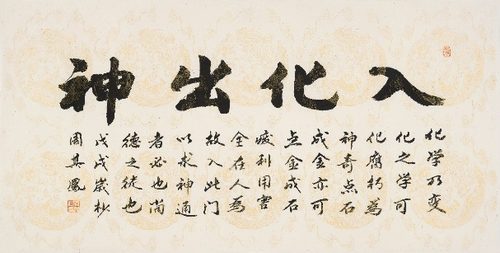 入化出神
化学乃变
化之学可
化腐朽為
神奇点石
成金亦可
点金成石
利用害
全在人為
故入此门
以求神通
者必也尚
德之徒也
戊戌岁杪
周其凤